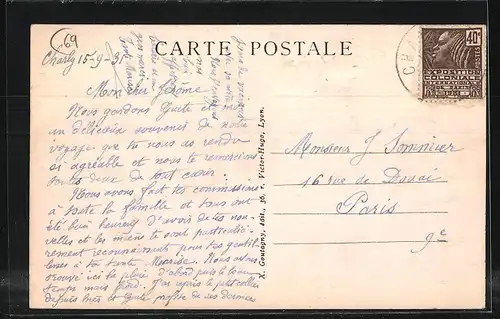 69
CARTE POSTALE
Charly 15-9-31
Mon cher Jérôme
Nous gardons Guite et moi
un délicieux souvenir de notre
voyage que tu nous as rendu
si agréable et nous te remercions
tous deux de tout cœur.
Nous avons fait tes commissions
à toute la famille et tous ont
été bien heureux d'avoir de tes nou-
velles et les miens te sont particuliè-
rement reconnaissants pour tes gentil
lesses à ta tante Marise. Nous avons
trouvé ici la pluie d'abord puis le beau
temps mais froid. J'ai repris le
depuis hier et Guite profite de ses derniers
X. Goutagny, édit., 36, r. Victor-Hugo, Lyon.
EXPOSITION
COLONIALE
INTERNATIONALE
PARIS 1931
40c
POSTES
CH
Monsieur J. Sonnier
16 rue de Douai
Paris
9e